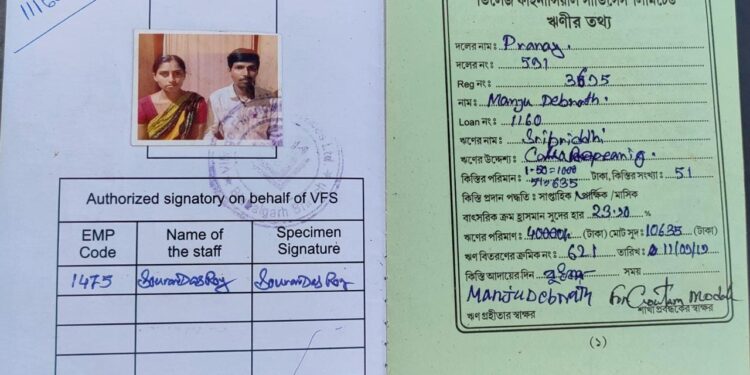 1160
Authorized signatory on behalf of VFS
EMP Code
Name of the staff
Specimen Signature
1475
SouravDasRoy
SouravDasRoy
ঋণীর তথ্য
দলের নাম: Pranay.
দলের নং: 591
Reg নং:
নাম: Manju Debnath.
Loan নং: 1160
ঋণের নাম: Sribriddhi
ঋণের উদ্দেশ্য:
1-50=1000
কিস্তির পরিমান: 51-635 টাকা, কিস্তির সংখ্যা: 51
কিস্তি প্রদান পদ্ধতি: সাপ্তাহিক /মাসিক
বাৎসরিক ক্রম হ্রাসমান সুদের হার: %
ঋণের পরিমাণ: 40000/- (টাকা) মোট সুদ: 10635 (টাকা)
ঋণ বিতরণের ক্রমিক নং: 621 তারিখ: 11/09/19
কিস্তি আদায়ের দিন সময়
Manju Debnath For Goutam Modak
ঋণ গ্রহীতার স্বাক্ষর শাখা প্রবন্ধকের স্বাক্ষর
(১)